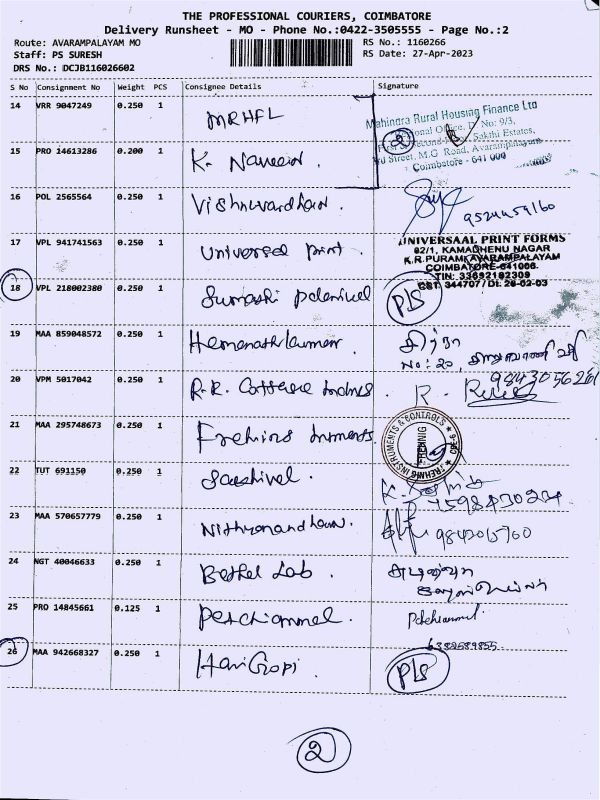 THE PROFESSIONAL COURIERS, COIMBATORE
Delivery Runsheet - MO - Phone No.:0422-3505555 - Page No.:2
Route: AVARAMPALAYAM MO
RS No.: 1160266
Staff: PS SURESH
RS Date: 27-Apr-2023
DRS No.: DCJB116026602
S No Consignment No Weight PCS Consignee Details Signature
14 VRR 9047249 0.250 1 MRHFL
Mahindra Rural Housing Finance Ltd
No: 9/3,
Sakthi Estates,
Street, M.G Road, Avarampalayam
Coimbatore - 641 006
2
15 PRO 14613286 0.200 1 K. Naveen.
16 POL 2565564 0.250 1 Vishnuvardhan.
9524459160
17 VPL 941741563 0.250 1 Universal print.
UNIVERSAAL PRINT FORMS
82/1, KAMADHENU NAGAR
K.R.PURAM, AVARAMPALAYAM
COIMBATORE-641006.
TIN: 33692182309
CST: 344707 / Dt: 28-02-03
18 VPL 218002380 0.250 1 Sumathi Palanivel PLS
19 MAA 859048572 0.250 1 Hemanathkumar
No: 20,
9843056261
20 VPM 5017042 0.250 1 R.R. R.
21 MAA 295748673 0.250 1
INSTRUMENTS & CONTROLS
TREHNIG
CBE-6
22 TUT 691150 0.250 1 Sakthivel.
23 MAA 570657779 0.250 1 Nithyanandhan.
9843015700
24 NGT 40046633 0.250 1 Bethel Lab.
25 PRO 14845661 0.125 1 Petchiammal. Petchiammal
6382589855
26 MAA 942668327 0.250 1 Hari Gopi PLS
2